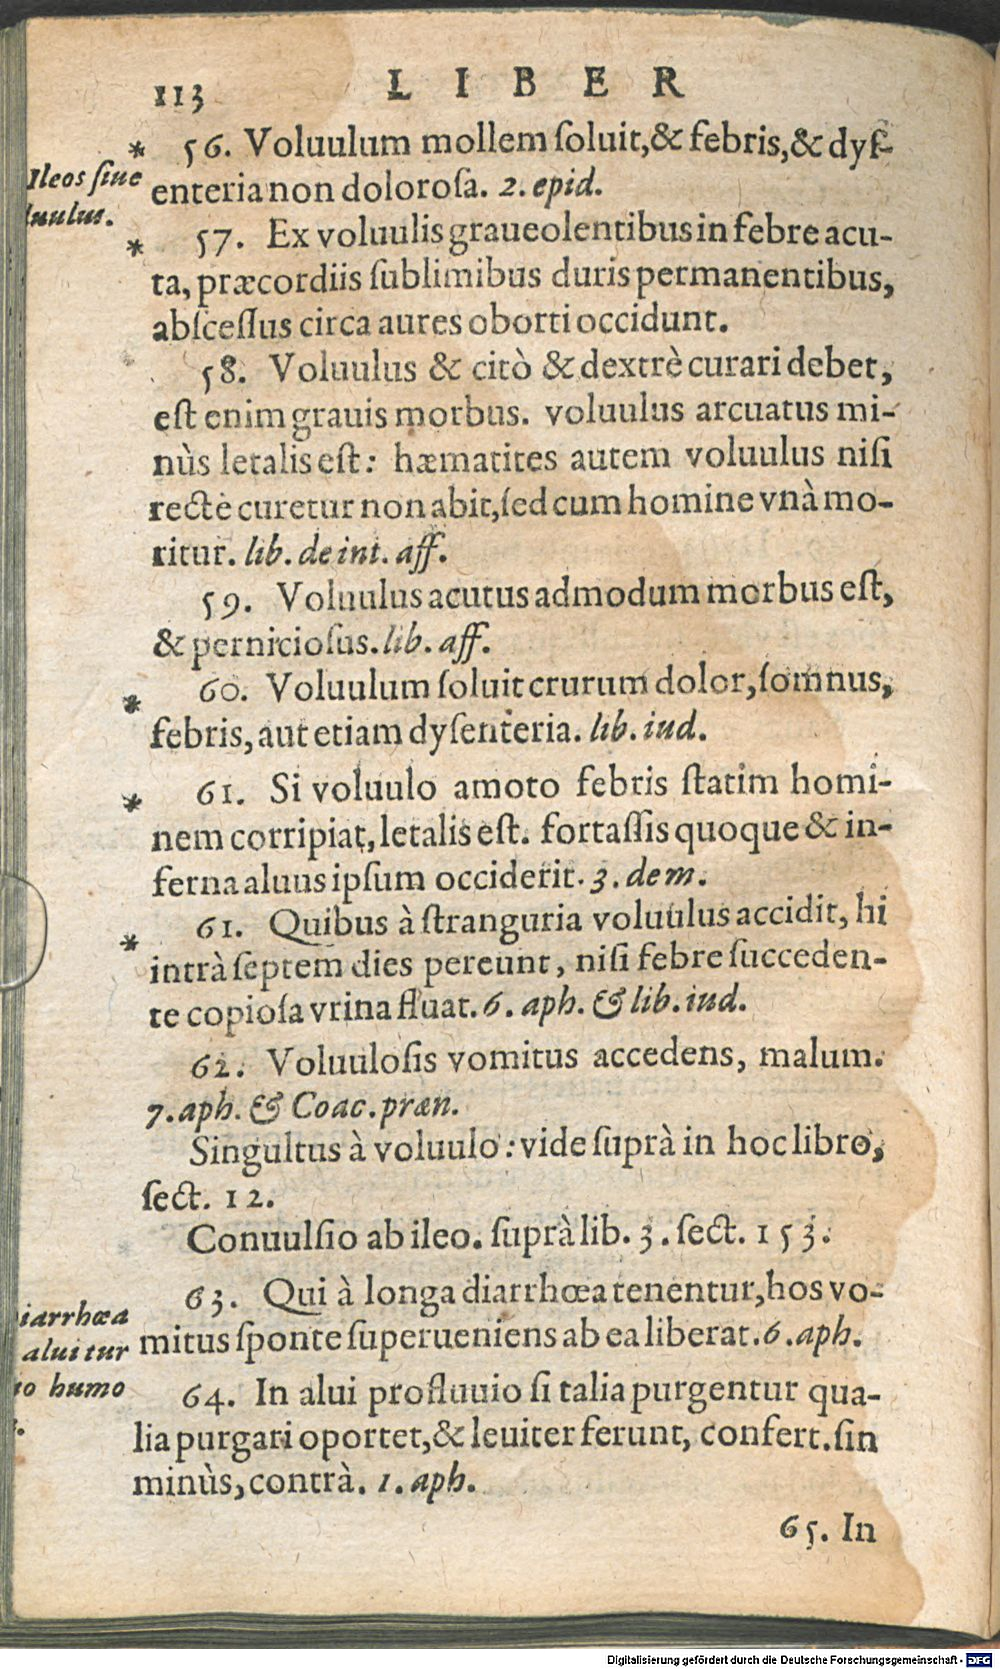 113 LIBER
* 56. Voluulum mollem ſoluit,& febris,& dyſ-
Ileos ſiue enteria non doloroſa. 2. epid.
luulus.
* 57. Ex voluulis graueolentibus in febre acu-
ta, præcordiis ſublimibus duris permanentibus,
abſceſſus circa aures oborti occidunt.
58. Voluulus & citò & dextrè curari debet,
eſt enim grauis morbus. voluulus arcuatus mi-
nùs letalis eſt: hæmatites autem voluulus niſi
rectè curetur non abit, ſed cum homine vnà mo-
ritur. lib. de int. aff.
59. Voluulus acutus admodum morbus eſt,
& pernicioſus. lib. aff.
* 60. Voluulum ſoluit crurum dolor, ſomnus,
febris, aut etiam dyſenteria. lib. iud.
* 61. Si voluulo amoto febris ſtatim homi-
nem corripiat, letalis eſt. fortaſſis quoque & in-
ferna aluus ipſum occiderit. 3. de m.
* 61. Quibus à ſtranguria voluulus accidit, hi
intrà ſeptem dies pereunt, niſi febre ſucceden-
te copioſa vrina fluat. 6. aph. & lib. iud.
62. Voluuloſis vomitus accedens, malum.
7. aph. & Coac. præn.
Singultus à voluulo: vide ſuprà in hoc libro,
ſect. 12.
Conuulſio ab ileo. ſuprà lib. 3. ſect. 153.
63. Qui à longa diarrhœa tenentur, hos vo-
iarrhœa mitus ſponte ſuperueniens ab ea liberat. 6. aph.
alui tur
io humo 64. In alui profluuio ſi talia purgentur qua-
lia purgari oportet, & leuiter ferunt, confert. ſin
minùs, contrà. 1. aph.
65. In
Digitalisierung gefördert durch die Deutsche Forschungsgemeinschaft - DFG